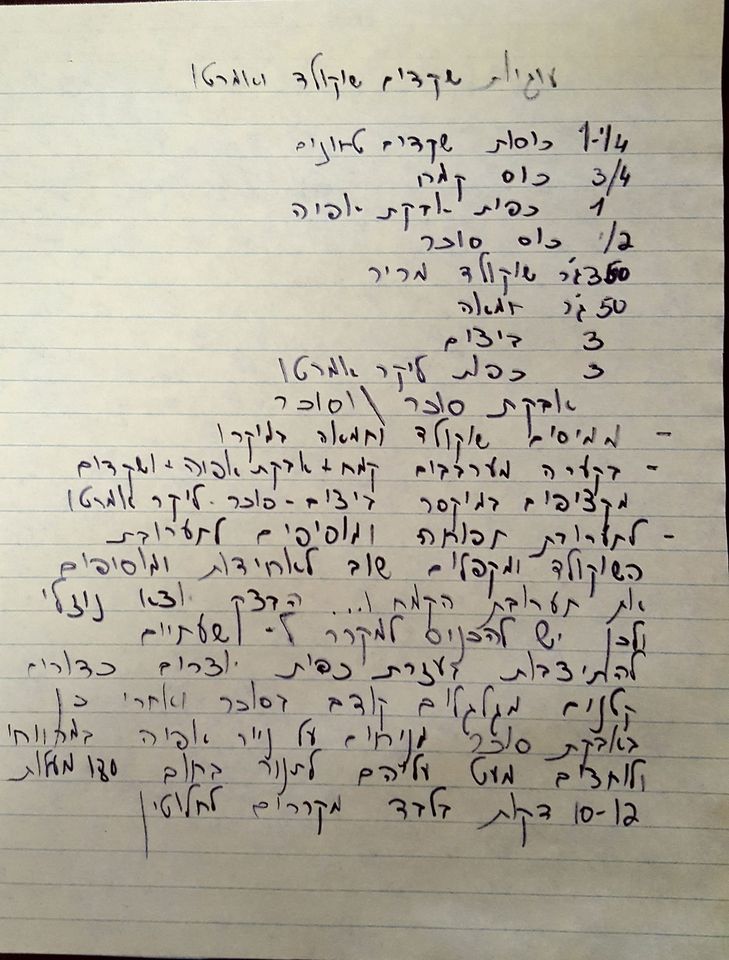 עוגיות שקדים שוקולד ואמרטו
1-1/4 כוסות שקדים טחונים
3/4 כוס קמח
1 כפית אבקת אפיה
1/2 כוס סוכר
גר' שוקולד מריר
50 גר' חמאה
3 ביצים
3 כפות ליקר אמרטו
אבקת סוכר \ וסוכר
- ממיסים שוקולד וחמאה במיקרו
- בקערה מערבבים קמח + אבקת אפיה + ושקדים
מקציפים במיקסר ביצים - סוכר - ליקר אמרטו
- לתערובת תפוחה ומוסיפים לתערובת
השוקולד ומקפלים שוב לאחידות ומוסיפים
את תערובת הקמח ו... הבצק יוצא נוזלי
ולכן יש להכניס למקרר ל- שעתיים
להתיצבות בעזרת כפית יוצרים כדורים
קטנים מגלגלים קודם בסוכר ואחרי כן
באבקת סוכר מניחים על נייר אפיה במרווחי
ולוחצים מעט עליהם לתנור בחום מעלות
10-12 דקות בלבד מקררים לחלוטין